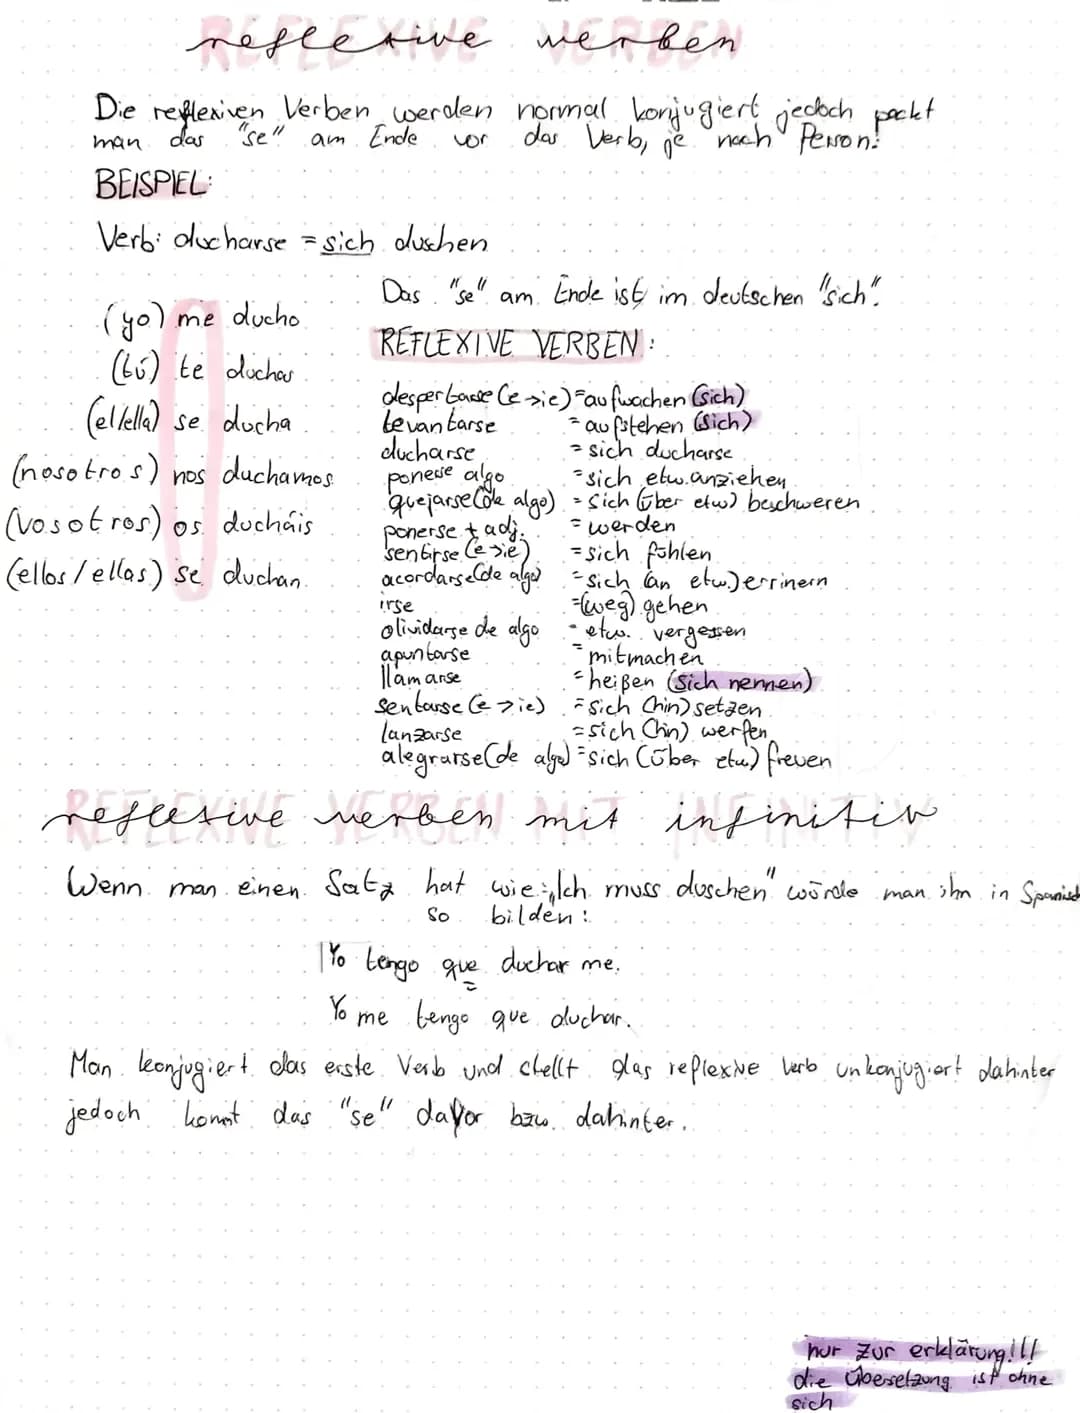 reflexive verben
REFLEXIVE VERBEN
Die reflexiven Verben werden normal konjugiert jedoch packt
man das "se" am Ende vor das Verb, je nach Person.
BEISPIEL:
Verb: ducharse = sich duschen
Das "se" am Ende ist im deutschen "sich".
(yo) me ducho
(tú) te duchas
(el/ella) se ducha
(nosotros) nos duchamos
(vosotros) os ducháis
(ellos/ellas) se duchan
REFLEXIVE VERBEN:
despertarse (e→ie) = aufwachen (sich)
levantarse = aufstehen (sich)
ducharse = sich ducharse
ponerse algo = sich etw. anziehen
quejarse (de algo) = sich (über etw) beschweren
ponerse + adj. = werden
sentirse (e→ie) = sich fühlen
acordarse (de algo) = sich (an etw.) errinern
irse = (weg) gehen
olividarse de algo = etw. vergessen
apuntarse = mitmachen
llamarse = heißen (sich nennen)
sentarse (e→ie) = sich (hin) setzen
lanzarse = sich (hin) werfen
alegrarse (de algo) = sich (über etw) freuen
reflexive verben mit infinitiv
REFLEXIVE VERBEN MIT INFINITIV
Wenn man einen Satz hat wie: „Ich muss duschen" würde man ihn in Spanisch
so bilden:
Yo tengo que duchar me.
Yo me tengo que duchar.
Man konjugiert das erste Verb und stellt das reflexive Verb unkonjugiert dahinter
jedoch kommt das "se" davor bzw. dahinter.
nur zur erklärung!!!
die Übersetzung ist ohne
sich